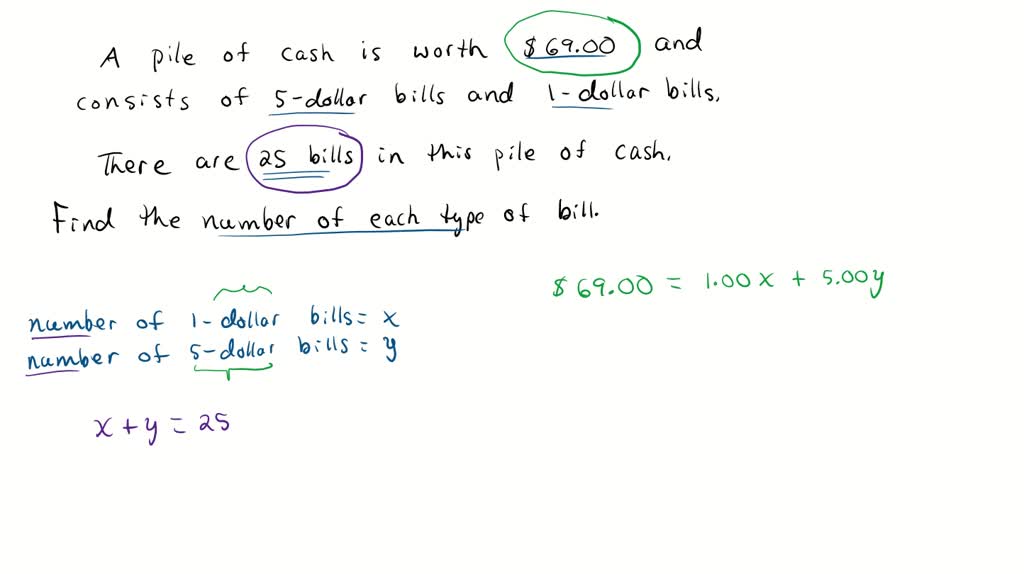 A pile of cash is worth $69.00 and
consists of 5-dollar bills and 1-dollar bills.
There are 25 bills in this pile of cash.
Find the number of each type of bill.
$69.00 = 1.00x + 5.00y
number of 1-dollar bills = x
number of 5-dollar bills = y
x + y = 25